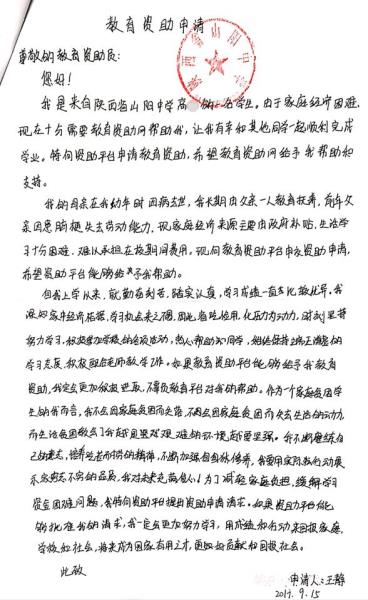 教育资助申请
尊敬的教育资助员：
您好！
我是来自陕西省山阳中学高 的一名学生。由于家庭经济困难，
现在十分需要教育资助网帮助我，让我有幸和其他同学一起顺利完成
学业。特向资助平台申请教育资助，希望教育资助网给予我帮助和
支持。
我的母亲在我幼年时因病去世，我长期由父亲一人教育抚养，前年父
亲因患脑梗失去劳动能力，现家庭经济来源主要由政府补贴，生活学
习十分困难，难以承担在校期间费用。现向教育资助平台申请资助申请，
希望资助平台能够给予我帮助。
自我上学以来，我勤奋刻苦，踏实认真，学习成绩一直比较优异。我
深知家中经济拮据，学习机会来之不易，因此 化压力为动力，时刻里
努力学习，积极参加学校的各项活动，热心帮助 同学，始终保持 的
学习态度，积极配合老师教学工作。如果教育资助平台能够给予我教育
资助，我定会更加积极进取，不辜负教育平台对我的帮助。作为一个家庭贫困学
生的我而言，我不会因家庭贫困而失落，不会因家庭贫困而失去生活的动力，
而生活贫困教会了我越是艰难的环境越要坚强。我不断磨练自
己的意志，培养 的精神，不断加强自身修养，我要用实际行动展
示 的品质，我对未来充满信心！为了减轻家庭负担，缓解学习
资金困难问题，我特向资助平台提出资助申请请求。如果资助平台能
够批准我的请求，我一定会更加努力学习，用成绩和行动来回报家庭、
学校和社会，将来成为国家有用之才，更好的贡献和回报社会。
此致
申请人：王静
2017. 9. 15
陕西省山阳中学